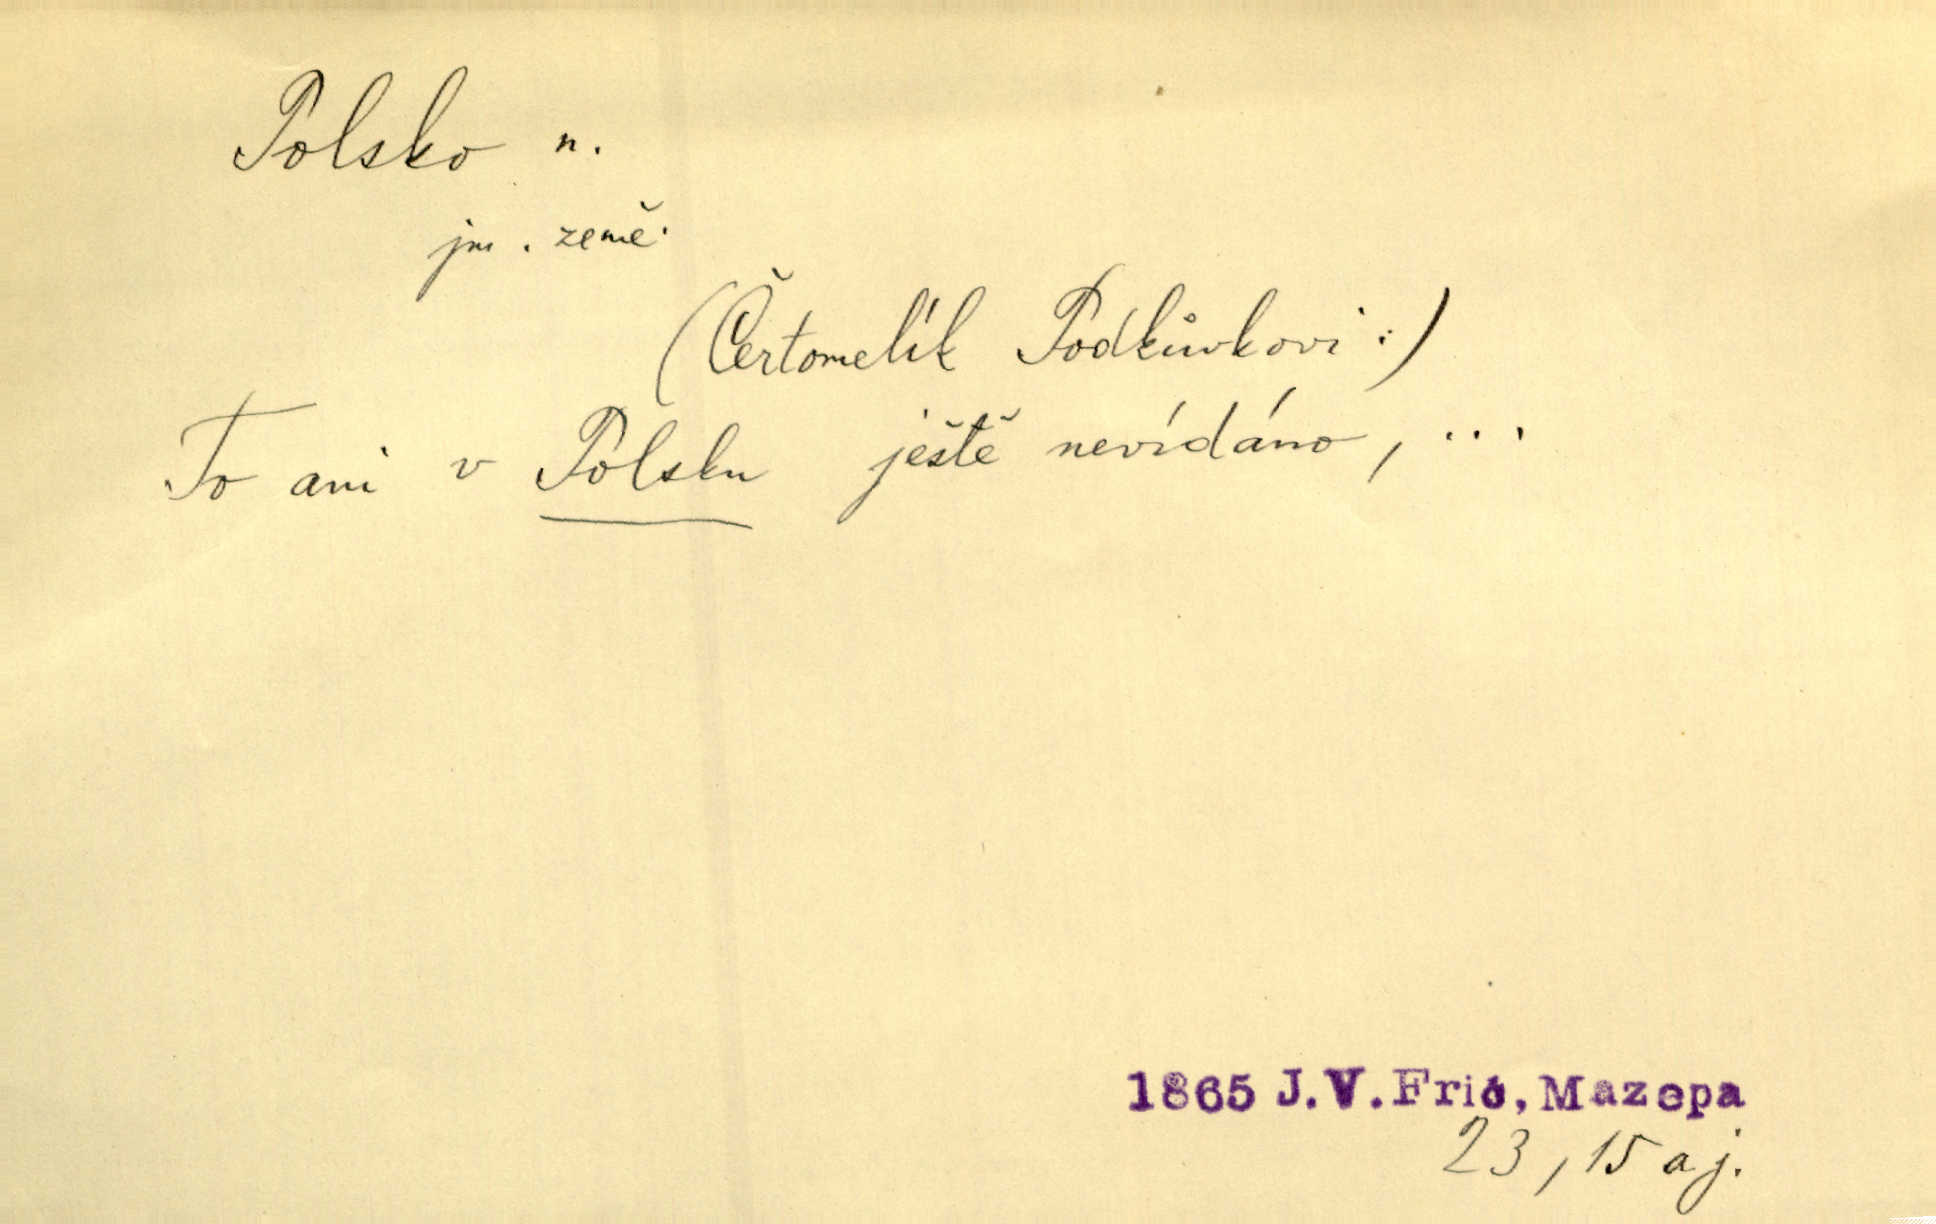 Polsko n.
jm. země.
(Čertomelík Podkůvkovi:)
To ani v Polsku ještě nevídáno, ...
1865 J.V.Frič, Mazepa
23, 15 aj.